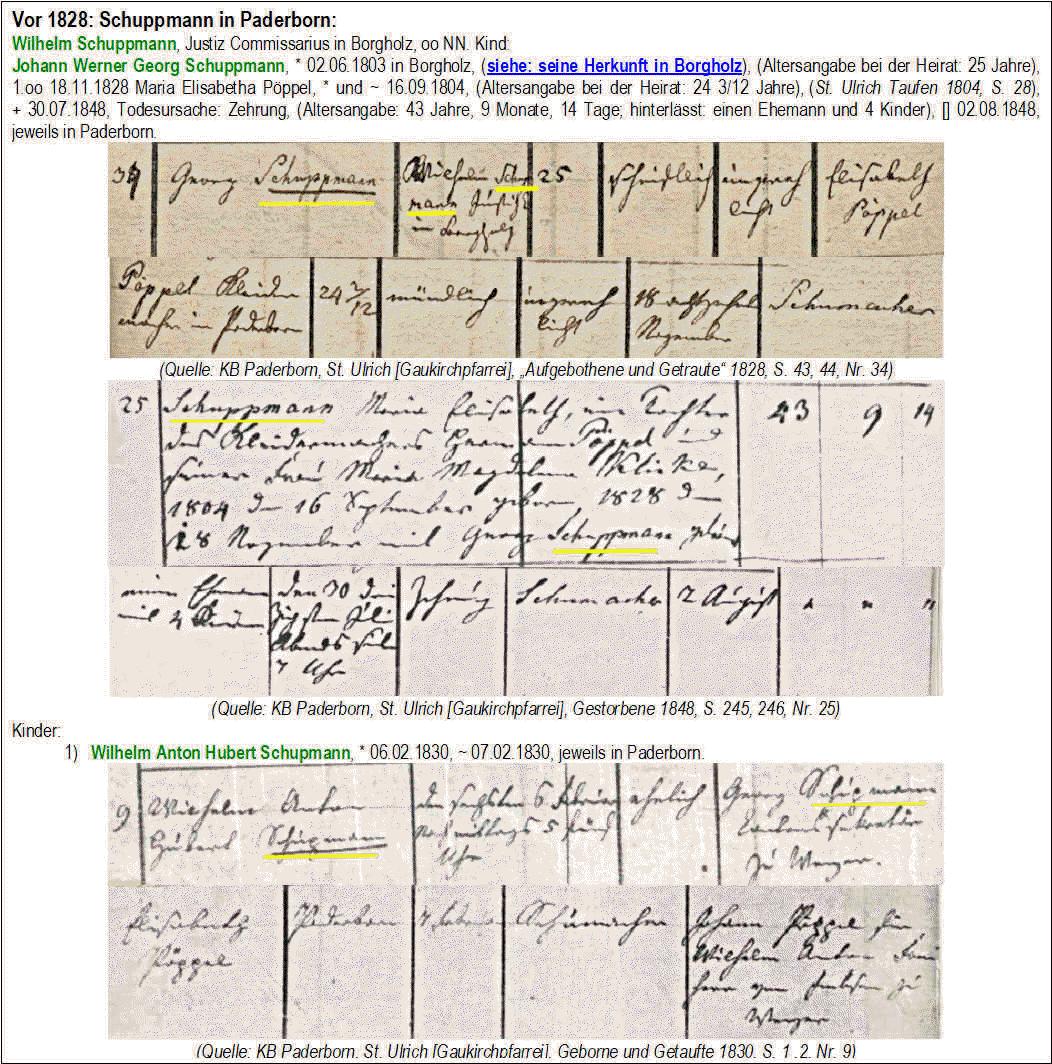 Vor 1828: Schuppmann in Paderborn:
Wilhelm Schuppmann, Justiz Commissarius in Borgholz, oo NN. Kind:
Johann Werner Georg Schuppmann, * 02.06.1803 in Borgholz, (siehe: seine Herkunft in Borgholz), (Altersangabe bei der Heirat: 25 Jahre),
1.oo 18.11.1828 Maria Elisabetha Pöppel, * und ~ 16.09.1804, (Altersangabe bei der Heirat: 24 3/12 Jahre), (St. Ulrich Taufen 1804, S. 28),
+ 30.07.1848, Todesursache: Zehrung, (Altersangabe: 43 Jahre, 9 Monate, 14 Tage; hinterlässt: einen Ehemann und 4 Kinder), [] 02.08.1848,
jeweils in Paderborn.
34 Georg Schuppmann Wilhelm Schup 25 Elisabeth
mann Justiz Pöppel
in Borgholz
Pöppel Kleider 24 /12 mündlich 18 achtzehn Schumacher
macher in Paderborn November
(Quelle: KB Paderborn, St. Ulrich [Gaukirchpfarrei], „Aufgebothene und Getraute“ 1828, S. 43, 44, Nr. 34)
25 Schuppmann Maria Elisabeth, eine Tochter 43 9 14
des Kleidermachers Pöppel und
seiner Frau Maria Magdalena
1804 den 16 September geboren, 1828 den
18 November mit Georg Schuppmann
einen Ehemann den 30 drei Zehrung Schumacher 2 August " " "
mit 4 Kindern ßigsten Juli
Abends
7 Uhr
(Quelle: KB Paderborn, St. Ulrich [Gaukirchpfarrei], Gestorbene 1848, S. 245, 246, Nr. 25)
Kinder:
1) Wilhelm Anton Hubert Schupmann, * 06.02.1830, ~ 07.02.1830, jeweils in Paderborn.
9 Wilhelm Anton den sechsten 6 Februar ehelich Georg Schupmann
Hubert Schupmann Nachmittags 5 fünf
Uhr zu Wewer.
Elisabeth Paderborn 7 Schumacher Johann Pöppel für
Pöppel Wilhelm Anton Frei
herr von zu
Wewer
(Quelle: KB Paderborn, St. Ulrich [Gaukirchpfarrei], Geborne und Getaufte 1830, S. 1, 2, Nr. 9)